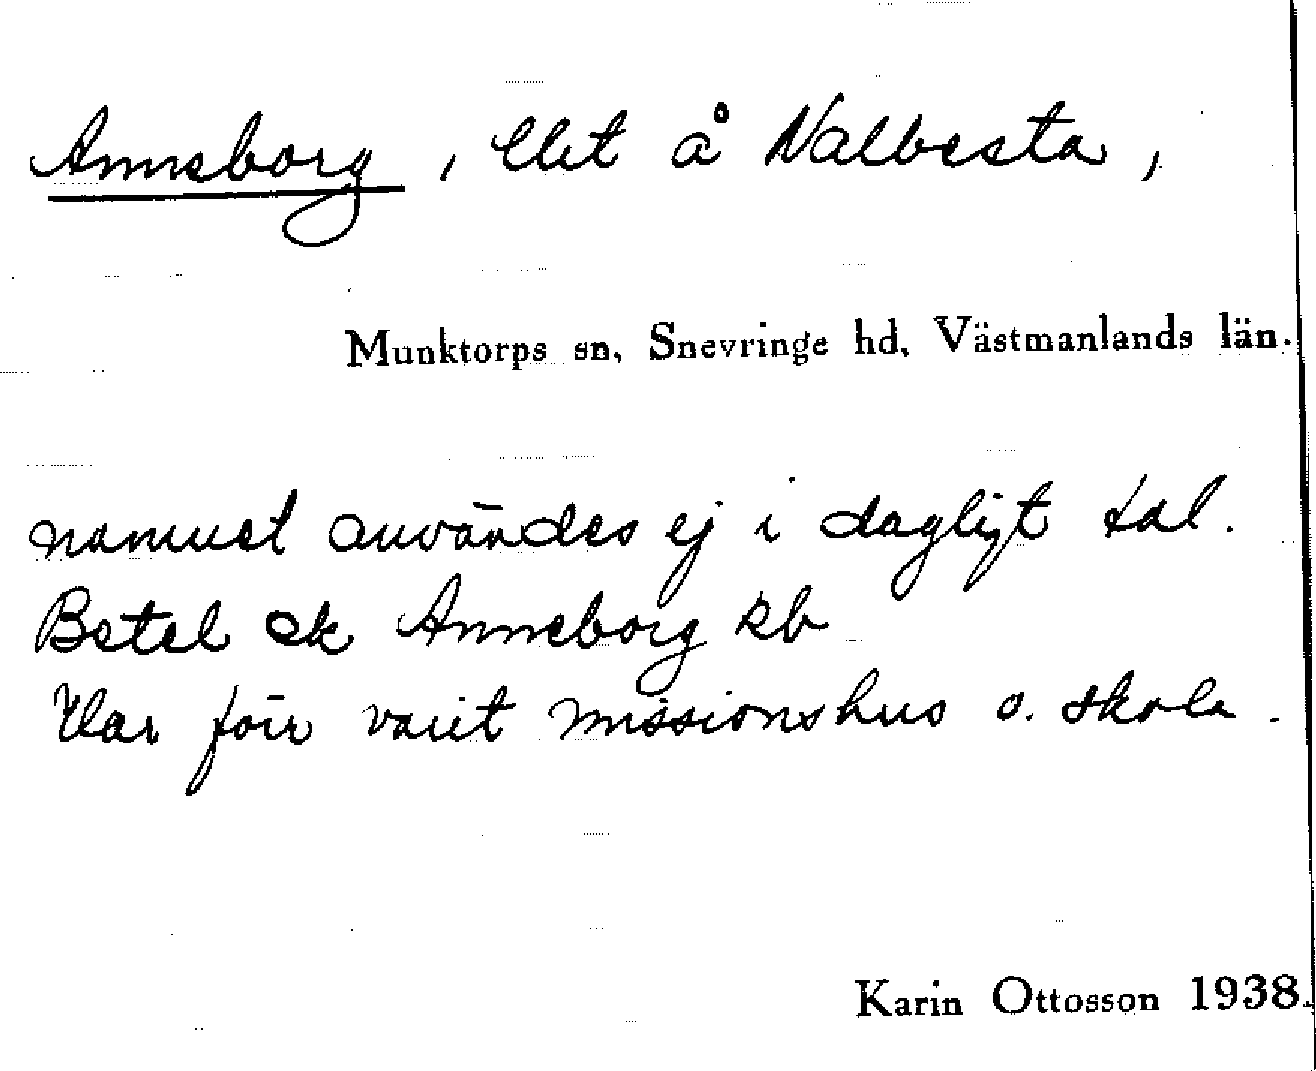 Anneborg, lht å Valbesta,
Munktorps sn, Snevringe hd, Västmanlands län.
namnet användes ej i dagligt tal.
Betel ek Anneborg kb
Har förr varit missionshus o. skola.
Karin Ottosson 1938.